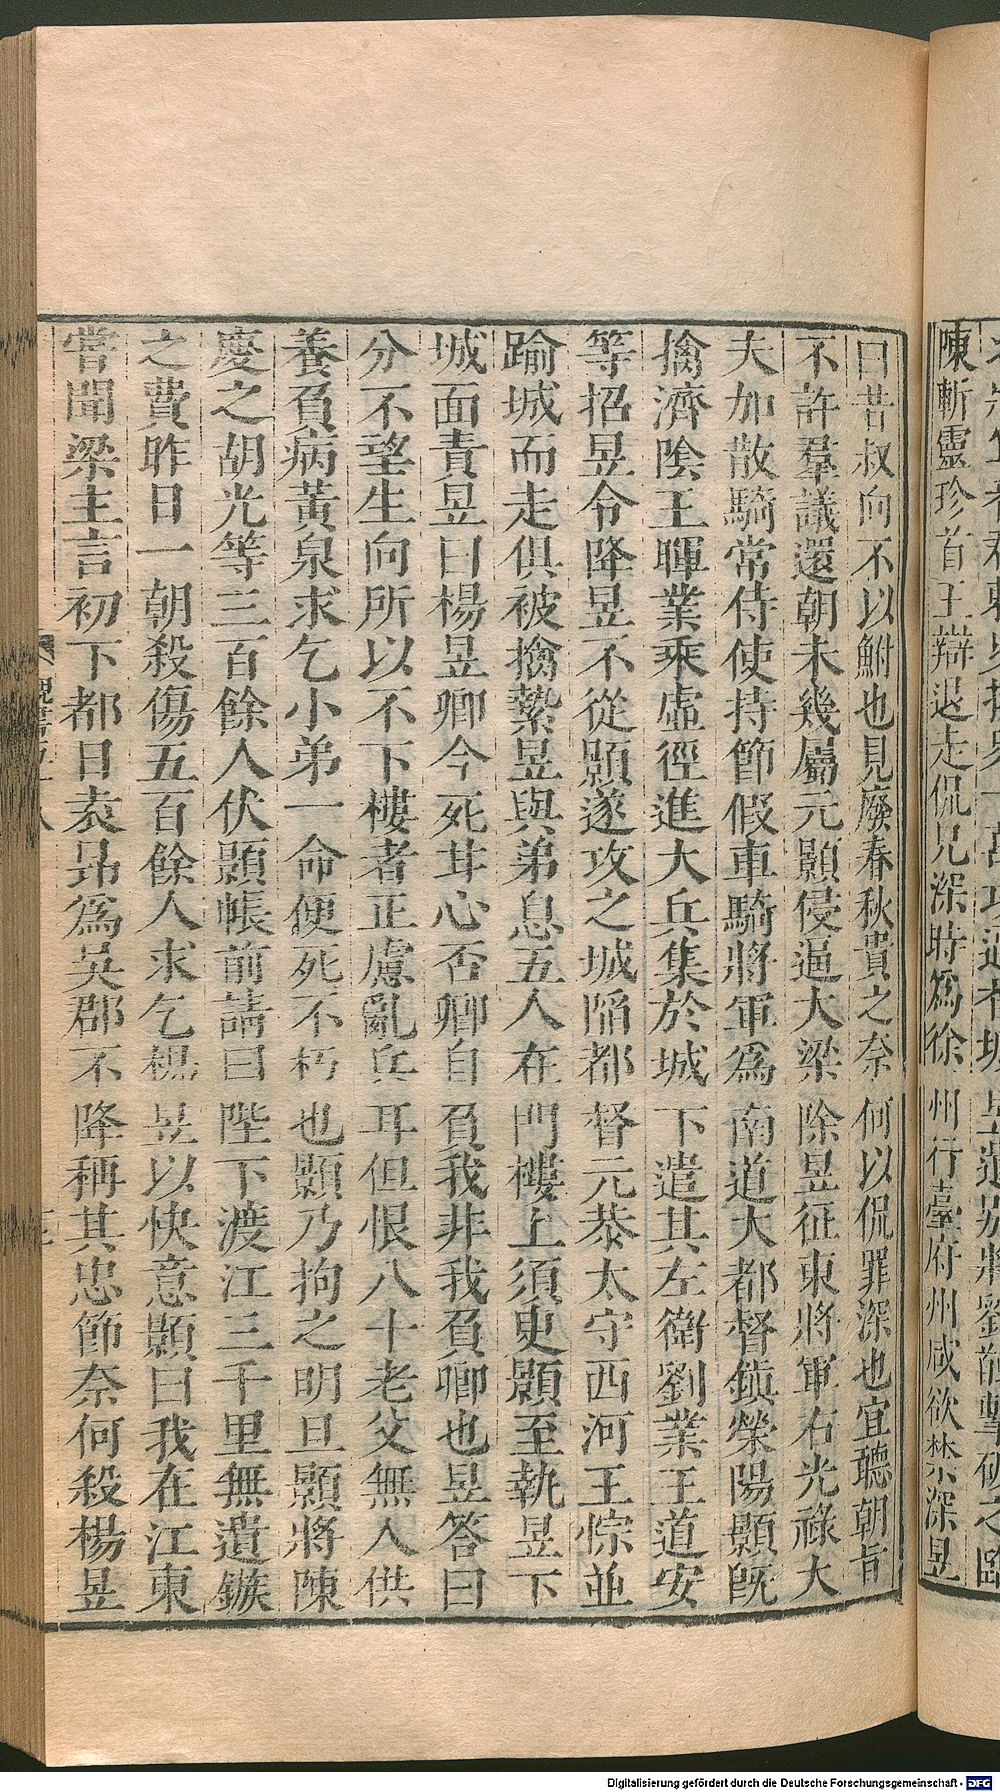 陳斬靈珍首王辯退走侃兄深時爲徐州行臺府州咸欲禁深昱
曰昔叔向不以鮒也見廢春秋貴之奈何以侃罪深也宜聽朝旨
不許羣議還朝未幾屬元顥侵逼大梁除昱征東將軍右光祿大
夫加散騎常侍使持節假車騎將軍爲南道大都督鎮滎陽顥旣
擒濟陰王暉業乘虛徑進大兵集於城下遣其左衛劉業王道安
等招昱令降昱不從顥遂攻之城陷都督元恭太守西河王悰並
踰城而走俱被擒縶昱與弟息五人在門樓上須臾顥至執昱下
城面責昱曰楊昱卿今死甘心否卿自負我非我負卿也昱答曰
分不望生向所以不下樓者正慮亂兵耳但恨八十老父無人供
養負病黃泉求乞小弟一命便死不朽也顥乃拘之明旦顥將陳
慶之胡光等三百餘人伏顥帳前請曰陛下渡江三千里無遺鏃
之費昨日一朝殺傷五百餘人求乞楊昱以快意顥曰我在江東
嘗聞梁主言初下都日袁昂爲吳郡不降稱其忠節奈何殺楊昱
Digitalisierung gefördert durch die Deutsche Forschungsgemeinschaft - DFG